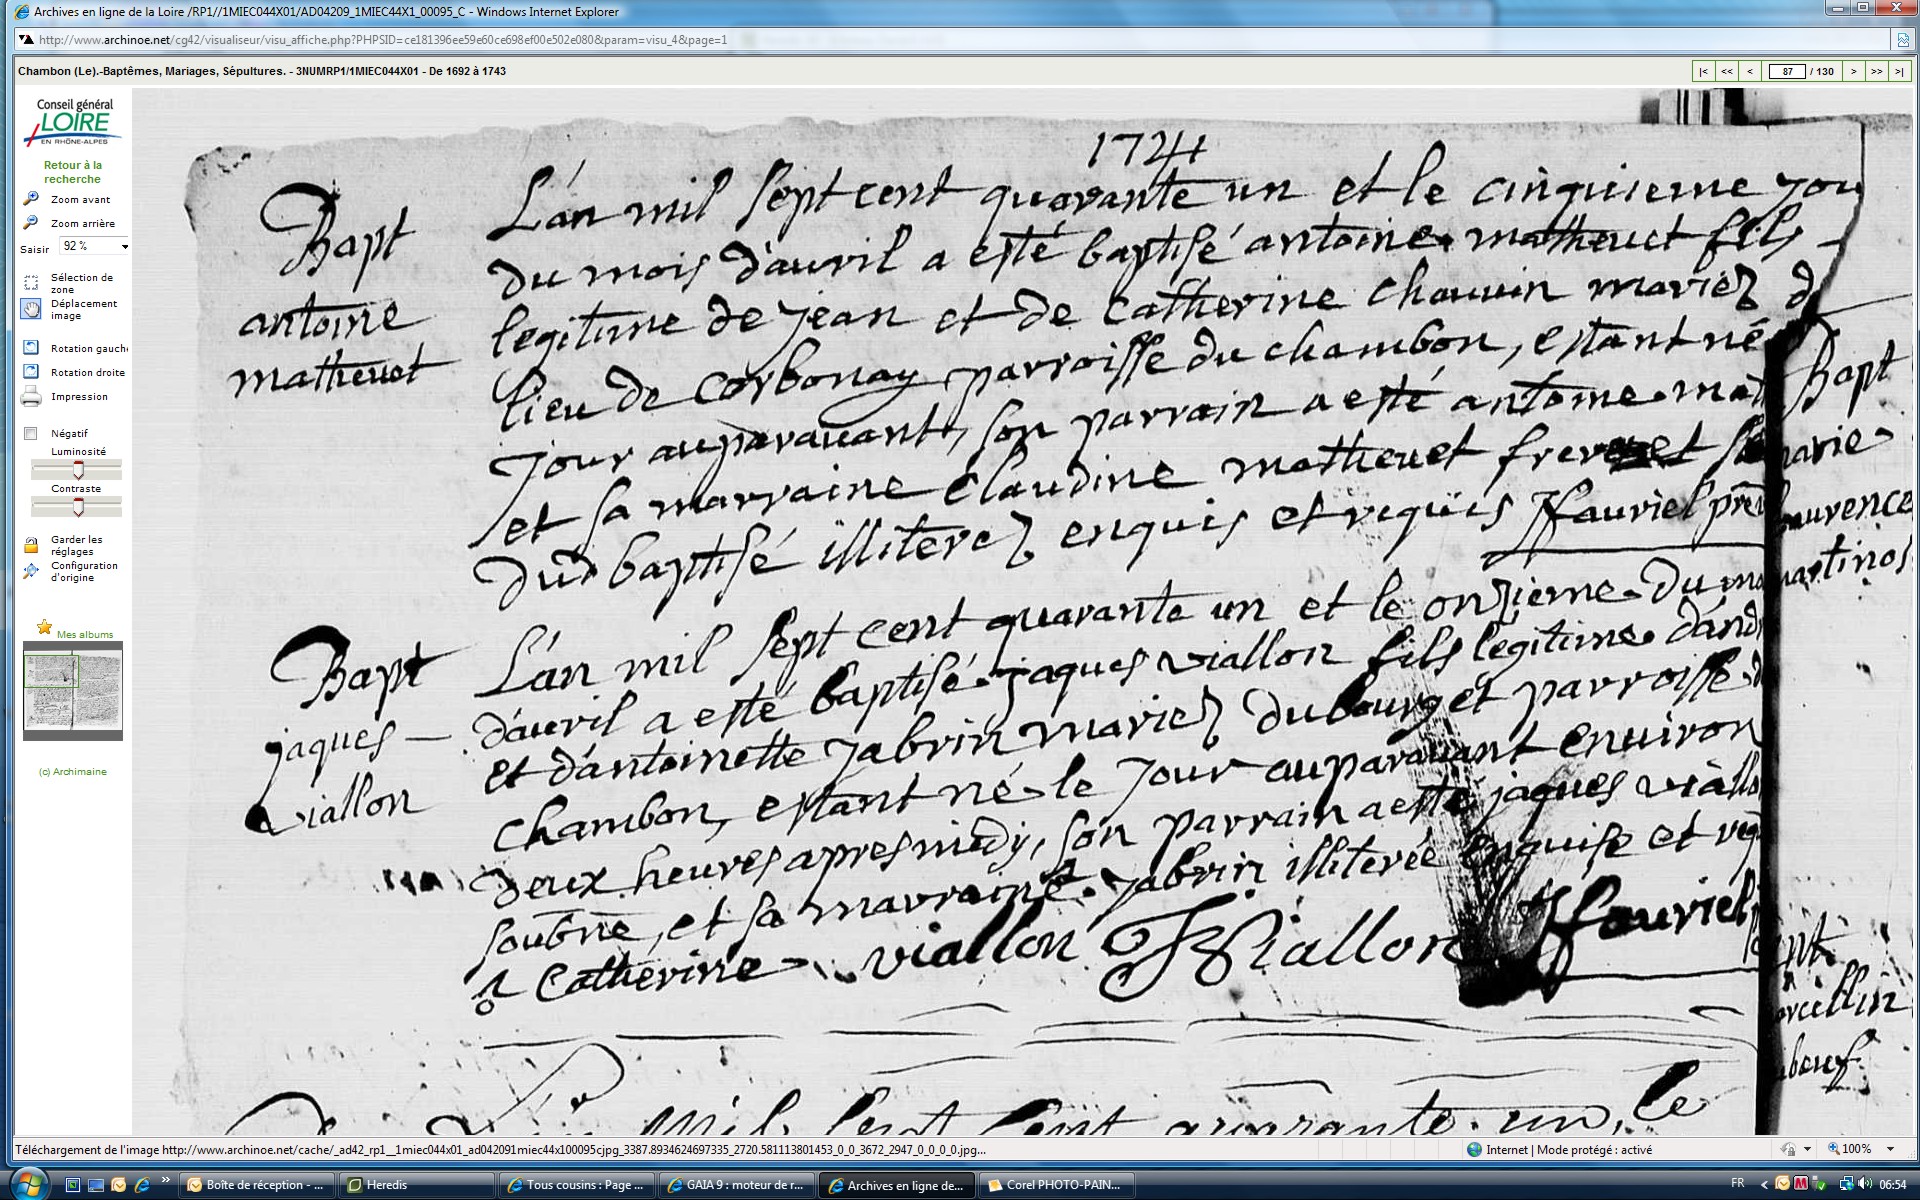 Archives en ligne de la Loire /RP1//1MIEC044X01/AD04209_1MIEC44X1_00095_C - Windows Internet Explorer
http://www.archinoe.net/cg42/visualiseur/visu_affiche.php?PHPSID=ce181396ee59e60ce698ef00e502e080&param=visu_4&page=1
Chambon (Le).-Baptêmes, Mariages, Sépultures. - 3NUMRP1/1MIEC044X01 - De 1692 à 1743
|< << < 87 / 130 > >> >|
Conseil général
LOIRE
EN RHÔNE-ALPES
Retour à la
recherche
Zoom avant
Zoom arrière
Saisir 92 %
Sélection de
zone
Déplacement
image
Rotation gauche
Rotation droite
Impression
Négatif
Luminosité
Contraste
Garder les
réglages
Configuration
d'origine
Mes albums
(c) Archimaine
1741
Bapt
antoine
matheuet
L'an mil sept cent quarante un et le cinquiesme jou
du mois d'auril a esté baptisé antoine matheuet fils
legitime de jean et de Catherine chauuin mariez d
lieu de Corbonay parroisse du chambon, estant né
jour auparauant, son parrain a esté antoine mat
et sa marraine Claudine matheuet frere et s
dud baptisé illiterez enquis et requis ffauriel
Bapt
jaques
viallon
L'an mil sept cent quarante un et le onzieme du m
d'auril a esté baptisé jaques viallon fils legitime d'and
et d'antoinette jabrin mariez du bourg et parroisse d
chambon, estant né le jour auparauant enuiron
deux heures apres midy, son parrain a esté jaques viallo
soubne, et sa marraine jabrin illiterée enquise et req
Catherine viallon Viallon ffauriel
Bapt
marie
laurence
martinos
L'an mil sept cent quarante un, le
Téléchargement de l'image http://www.archinoe.net/cache/_ad42_rp1__1miec044x01_ad042091miec44x100095cjpg_3387.8934624697335_2720.581113801453_0_0_3672_2947_0_0_0_0.jpg...
Internet | Mode protégé : activé
100%
Boîte de réception - ...
Heredis
Tous cousins : Page ...
GAIA 9 : moteur de r...
Archives en ligne de...
Corel PHOTO-PAIN...
FR
06:54